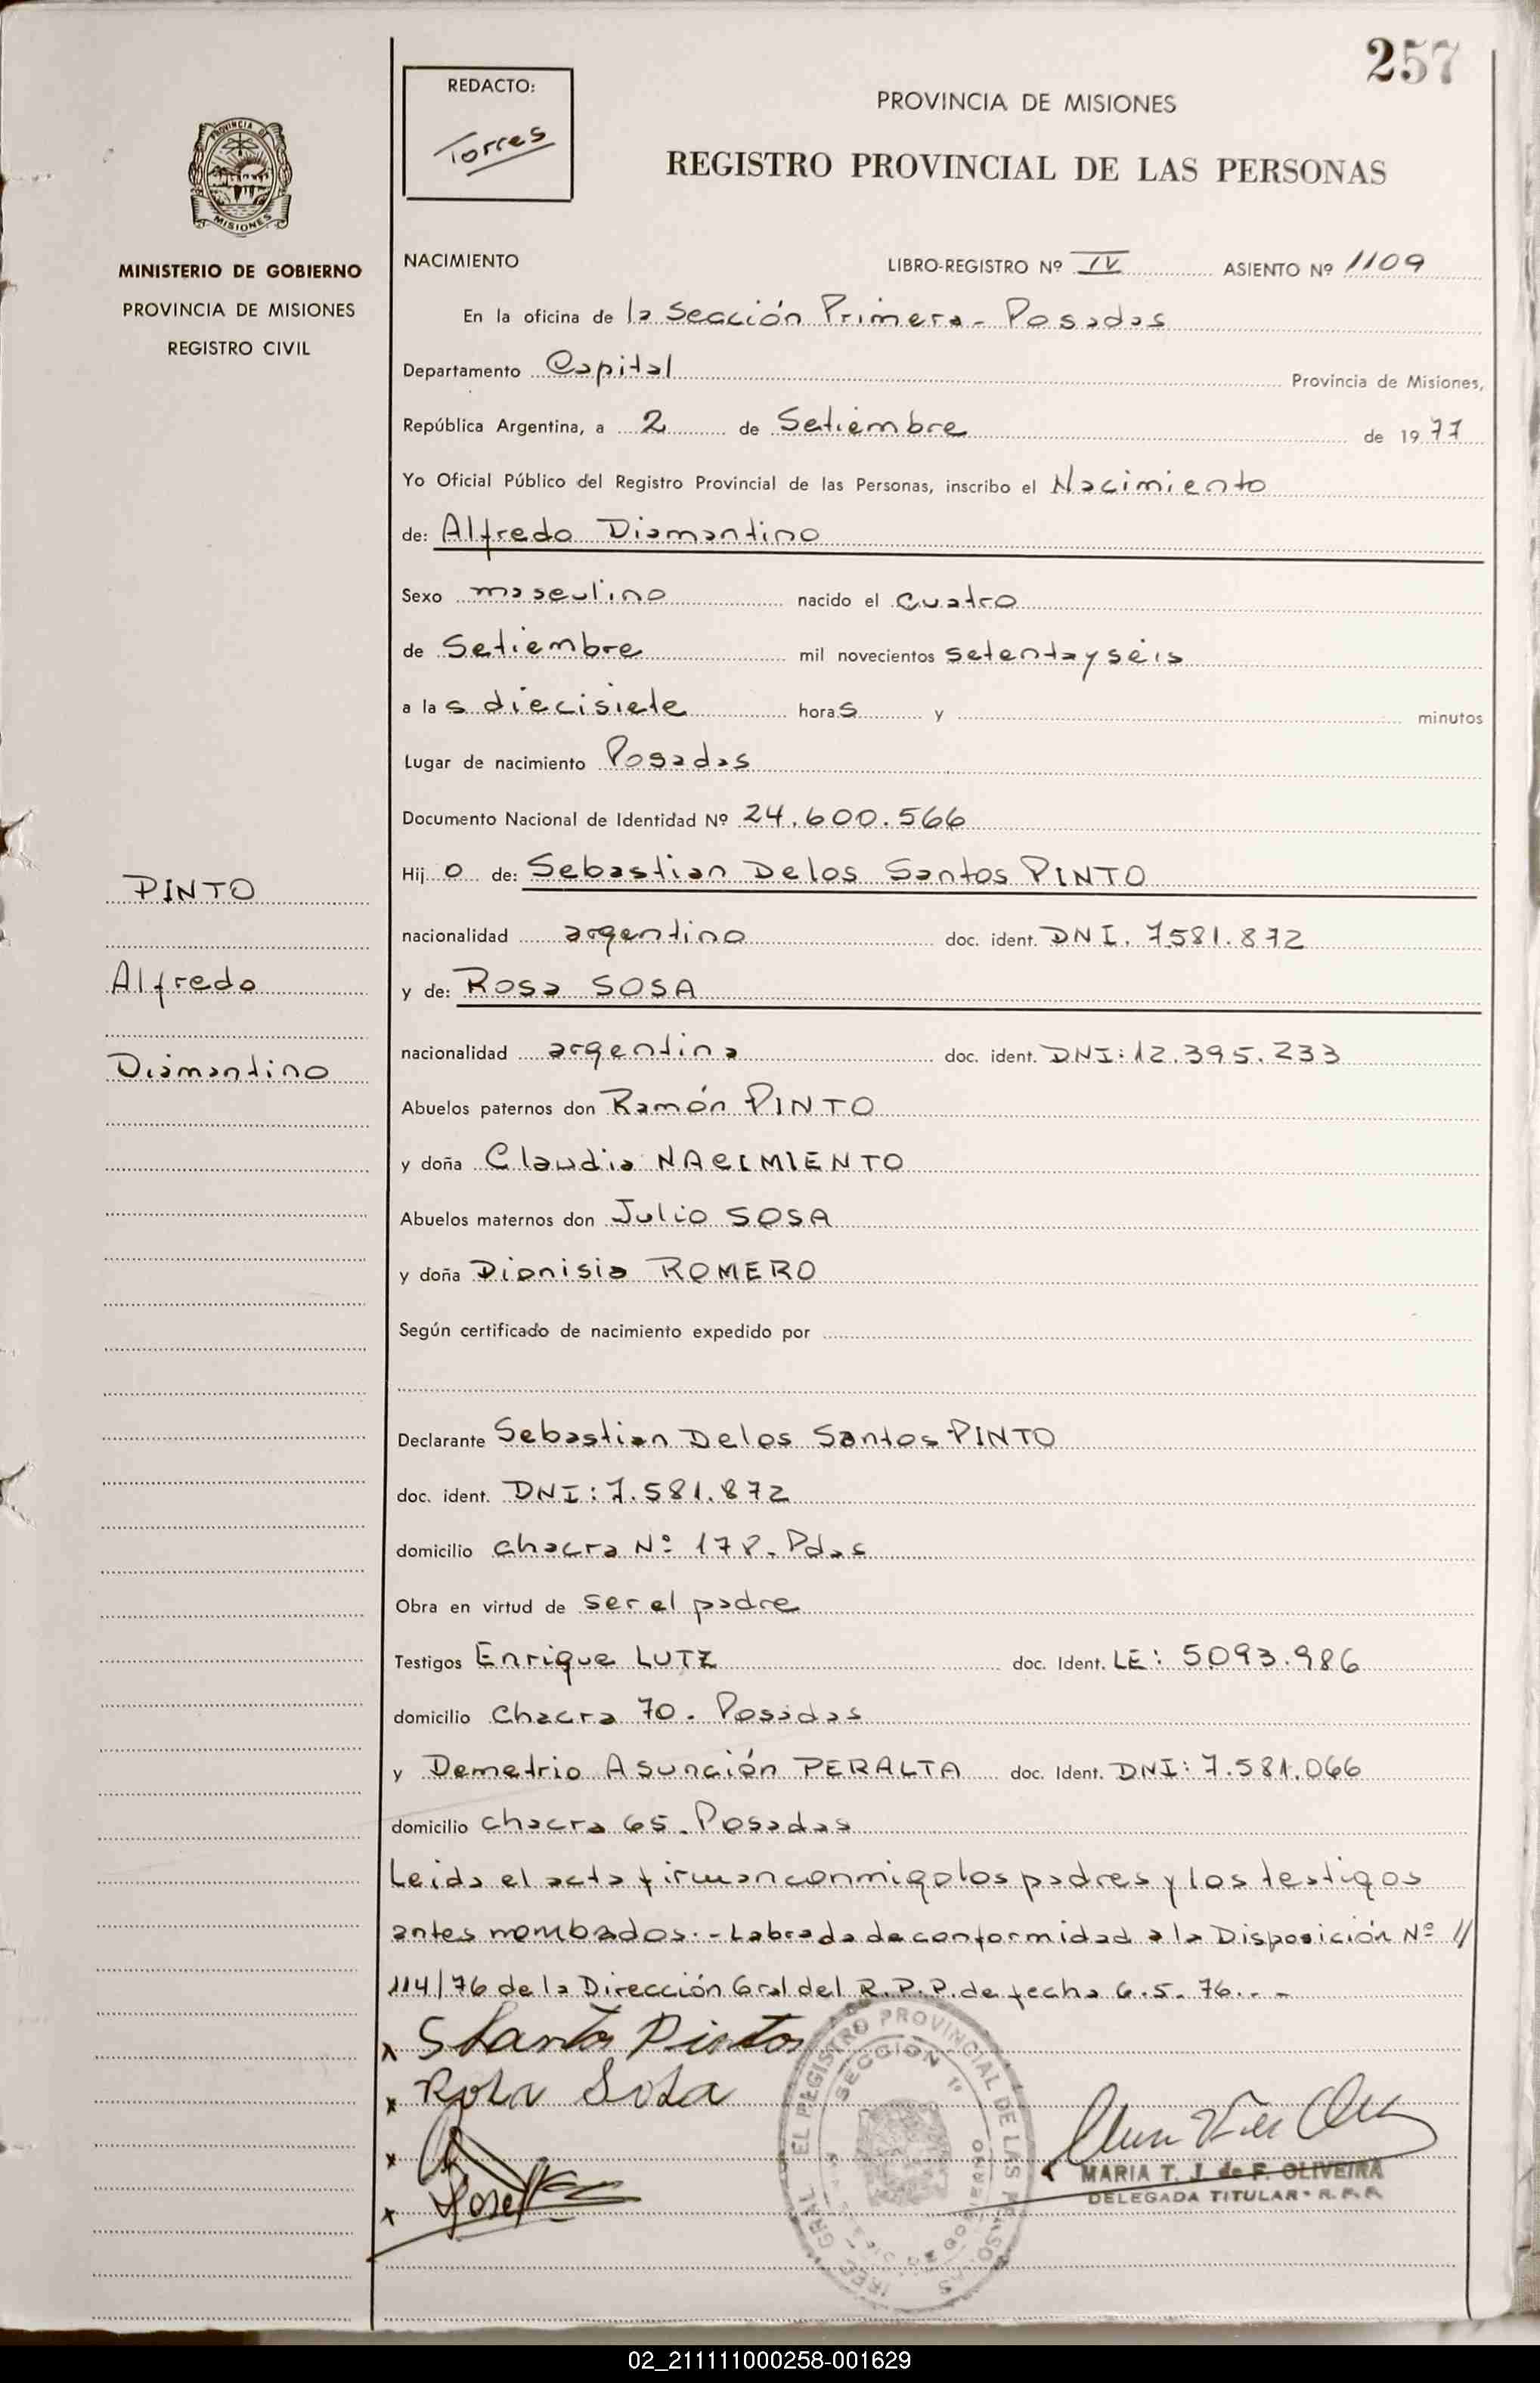 257
REDACTO:
Torres
PROVINCIA DE MISIONES
REGISTRO PROVINCIAL DE LAS PERSONAS
PROVINCIA DE
MISIONES
MINISTERIO DE GOBIERNO
PROVINCIA DE MISIONES
REGISTRO CIVIL
NACIMIENTO LIBRO-REGISTRO Nº IV ASIENTO Nº 1109
En la oficina de la Sección Primera - Posadas
Departamento Capital Provincia de Misiones,
República Argentina, a 2 de Setiembre de 1977
Yo Oficial Público del Registro Provincial de las Personas, inscribo el Nacimiento
de: Alfredo Diamantino
Sexo masculino nacido el cuatro
de Setiembre mil novecientos setenta y séis
a las diecisiete horas y minutos
Lugar de nacimiento Posadas
Documento Nacional de Identidad Nº 24.600.566
Hijo de: Sebastian Delos Santos PINTO
nacionalidad argentino doc. ident. DNI. 7581.872
y de: Rosa SOSA
nacionalidad argentina doc. ident. DNI: 12.395.233
Abuelos paternos don Ramón PINTO
y doña Claudia NACIMIENTO
Abuelos maternos don Julio SOSA
y doña Dionisia ROMERO
Según certificado de nacimiento expedido por
Declarante Sebastian Delos Santos PINTO
doc. ident. DNI: 7.581.872
domicilio chacra Nº 178. Pdas
Obra en virtud de ser el padre
Testigos Enrique LUTZ doc. Ident. LE: 5093.986
domicilio Chacra 70. Posadas
y Demetrio Asunción PERALTA doc. Ident. DNI: 7.581.066
domicilio chacra 65. Posadas
Leida el acta firman conmigo los padres y los testigos
antes nombados.- Labrada de conformidad a la Disposición Nº //
114/76 de la Dirección Gral del R.P.P. de fecha 6.5.76.--
x S Santos Pinto
x Rosa Sosa
x
x
PINTO
Alfredo
Diamantino
REGISTRO PROVINCIAL DE LAS
SECCION 1ª
MARIA T. J. de F. OLIVEIRA
DELEGADA TITULAR - R.P.P.
02_211111000258-001629